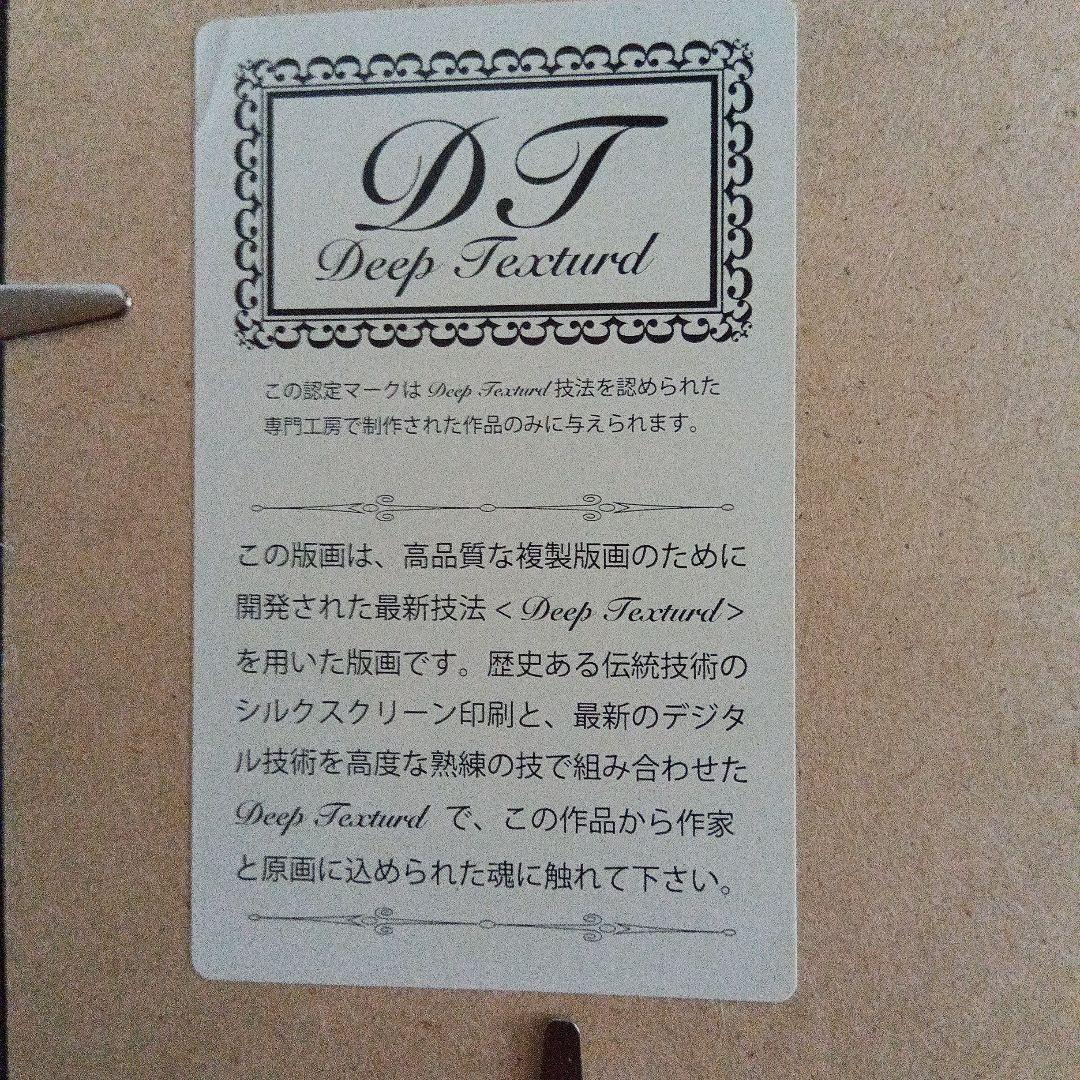 DT
Deep Texturd
この認定マークは Deep Texturd 技法を認められた
専門工房で制作された作品のみに与えられます。
この版画は、高品質な複製版画のために
開発された最新技法 < Deep Texturd >
を用いた版画です。歴史ある伝統技術の
シルクスクリーン印刷と、最新のデジタ
ル技術を高度な熟練の技で組み合わせた
Deep Texturd で、この作品から作家
と原画に込められた魂に触れて下さい。